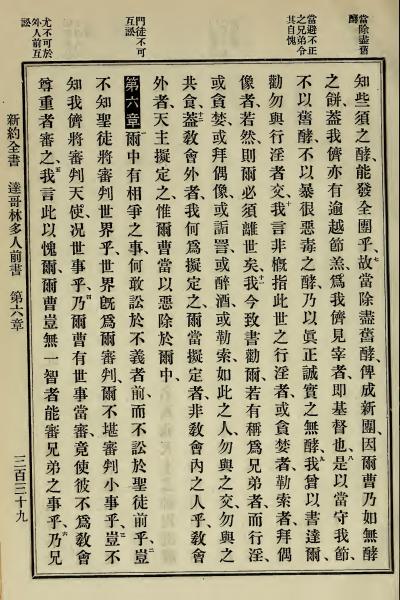 當除盡舊
酵
當避不正
之兄弟令
其自愧
門徒不可
互訟
尤不可於
外人前互
訟
知些須之酵、能發全團乎、七故當除盡舊酵、俾成新團、因爾曹乃如無酵
之餅、蓋我儕亦有逾越節羔、爲我儕見宰者、卽基督也、八是以當守我節、
不以舊酵、不以暴很惡毒之酵、乃以眞正誠實之無酵、九我曾以書達爾、
勸勿與行淫者交、十我言非概指此世之行淫者、或貪婪者、勒索者、拜偶
像者、若然、則爾必須離世矣、十一我今致書勸爾、若有稱爲兄弟者、而行淫、
或貪婪、或拜偶像、或詬詈、或醉酒、或勒索、如此之人、勿與之交、勿與之
共食、十二蓋敎會外者、我何爲擬定之、爾當擬定者、非敎會內之人乎、十三敎會
外者、天主擬定之、惟爾曹當以惡除於爾中、
第六章 一爾中有相爭之事、何敢訟於不義者前、而不訟於聖徒前乎、二豈
不知聖徒將審判世界乎、世界旣爲爾審判、爾不堪審判小事乎、三豈不
知我儕將審判天使、况世事乎、四乃爾曹有世事當審、竟使彼不爲敎會
尊重者審之、五我言此以愧爾、爾曹豈無一智者能審兄弟之事乎、六乃兄
新約全書 達哥林多人前書 第六章 三百三十九